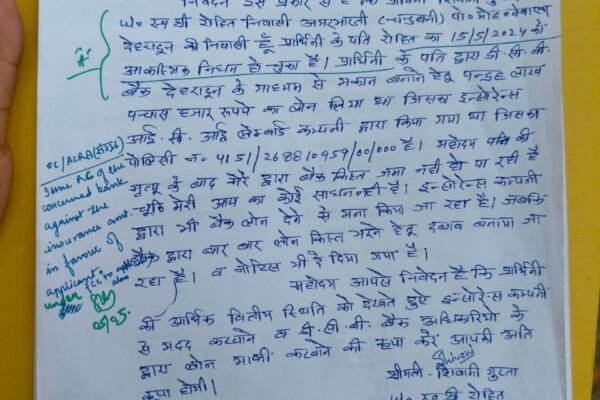 निवेदन इस प्रकार से है कि प्रार्थिनी
W/o स्व श्री रोहित निवासी अमरभारती (चन्द्रबनी) पो० मोहब्बेवाला
देहरादून की निवासी हूँ प्रार्थिनी के पति रोहित का 15/5/2024 को
आकस्मिक निधन हो चुका है। प्रार्थिनी के पति द्वारा डी० सी० बी०
बैंक देहरादून के माध्यम से मकान बनाने हेतू पन्द्रह लाख
पच्चास हजार रूपये का लोन लिया था जिसका इन्शोरेन्स
आई. सी. आई लोम्बार्ड कम्पनी द्वारा किया गया था जिसका
पोलिसी न० 4151//268810959/00/000 है। महोदय पति की
मृत्यू के बाद मेरे द्वारा बैंक किस्त जमा नही हो पा रही है
चूकि मेरी आय का कोई साधन नही है। इन्शोरेन्स कम्पनी
द्वारा भी बैंक लोन देने से मना किया जा रहा है। जबकि
बैंक द्वारा बार बार लोन किस्त भरने हेतू दबाव बनाया जा
रहा है। व नोटिस भी दे दिया गया है।
महोदय आपसे निवेदन है कि प्रार्थिनी
की आर्थिक वित्तीय स्थिति को देखते हुए इन्शोरेन्स कम्पनी
से मदद करवाने व डी. सी. बी. बैंक अधिकारियो के
द्वारा लोन माफी करवाने की कृपा करें आपकी अति
कृपा होगी।
Shivani
श्रीमती - शिवानी गुप्ता
W/o स्व श्री रोहित
"A"
Issue RC of the
concerned bank
against the
insurance amt.
in favour of
applicant